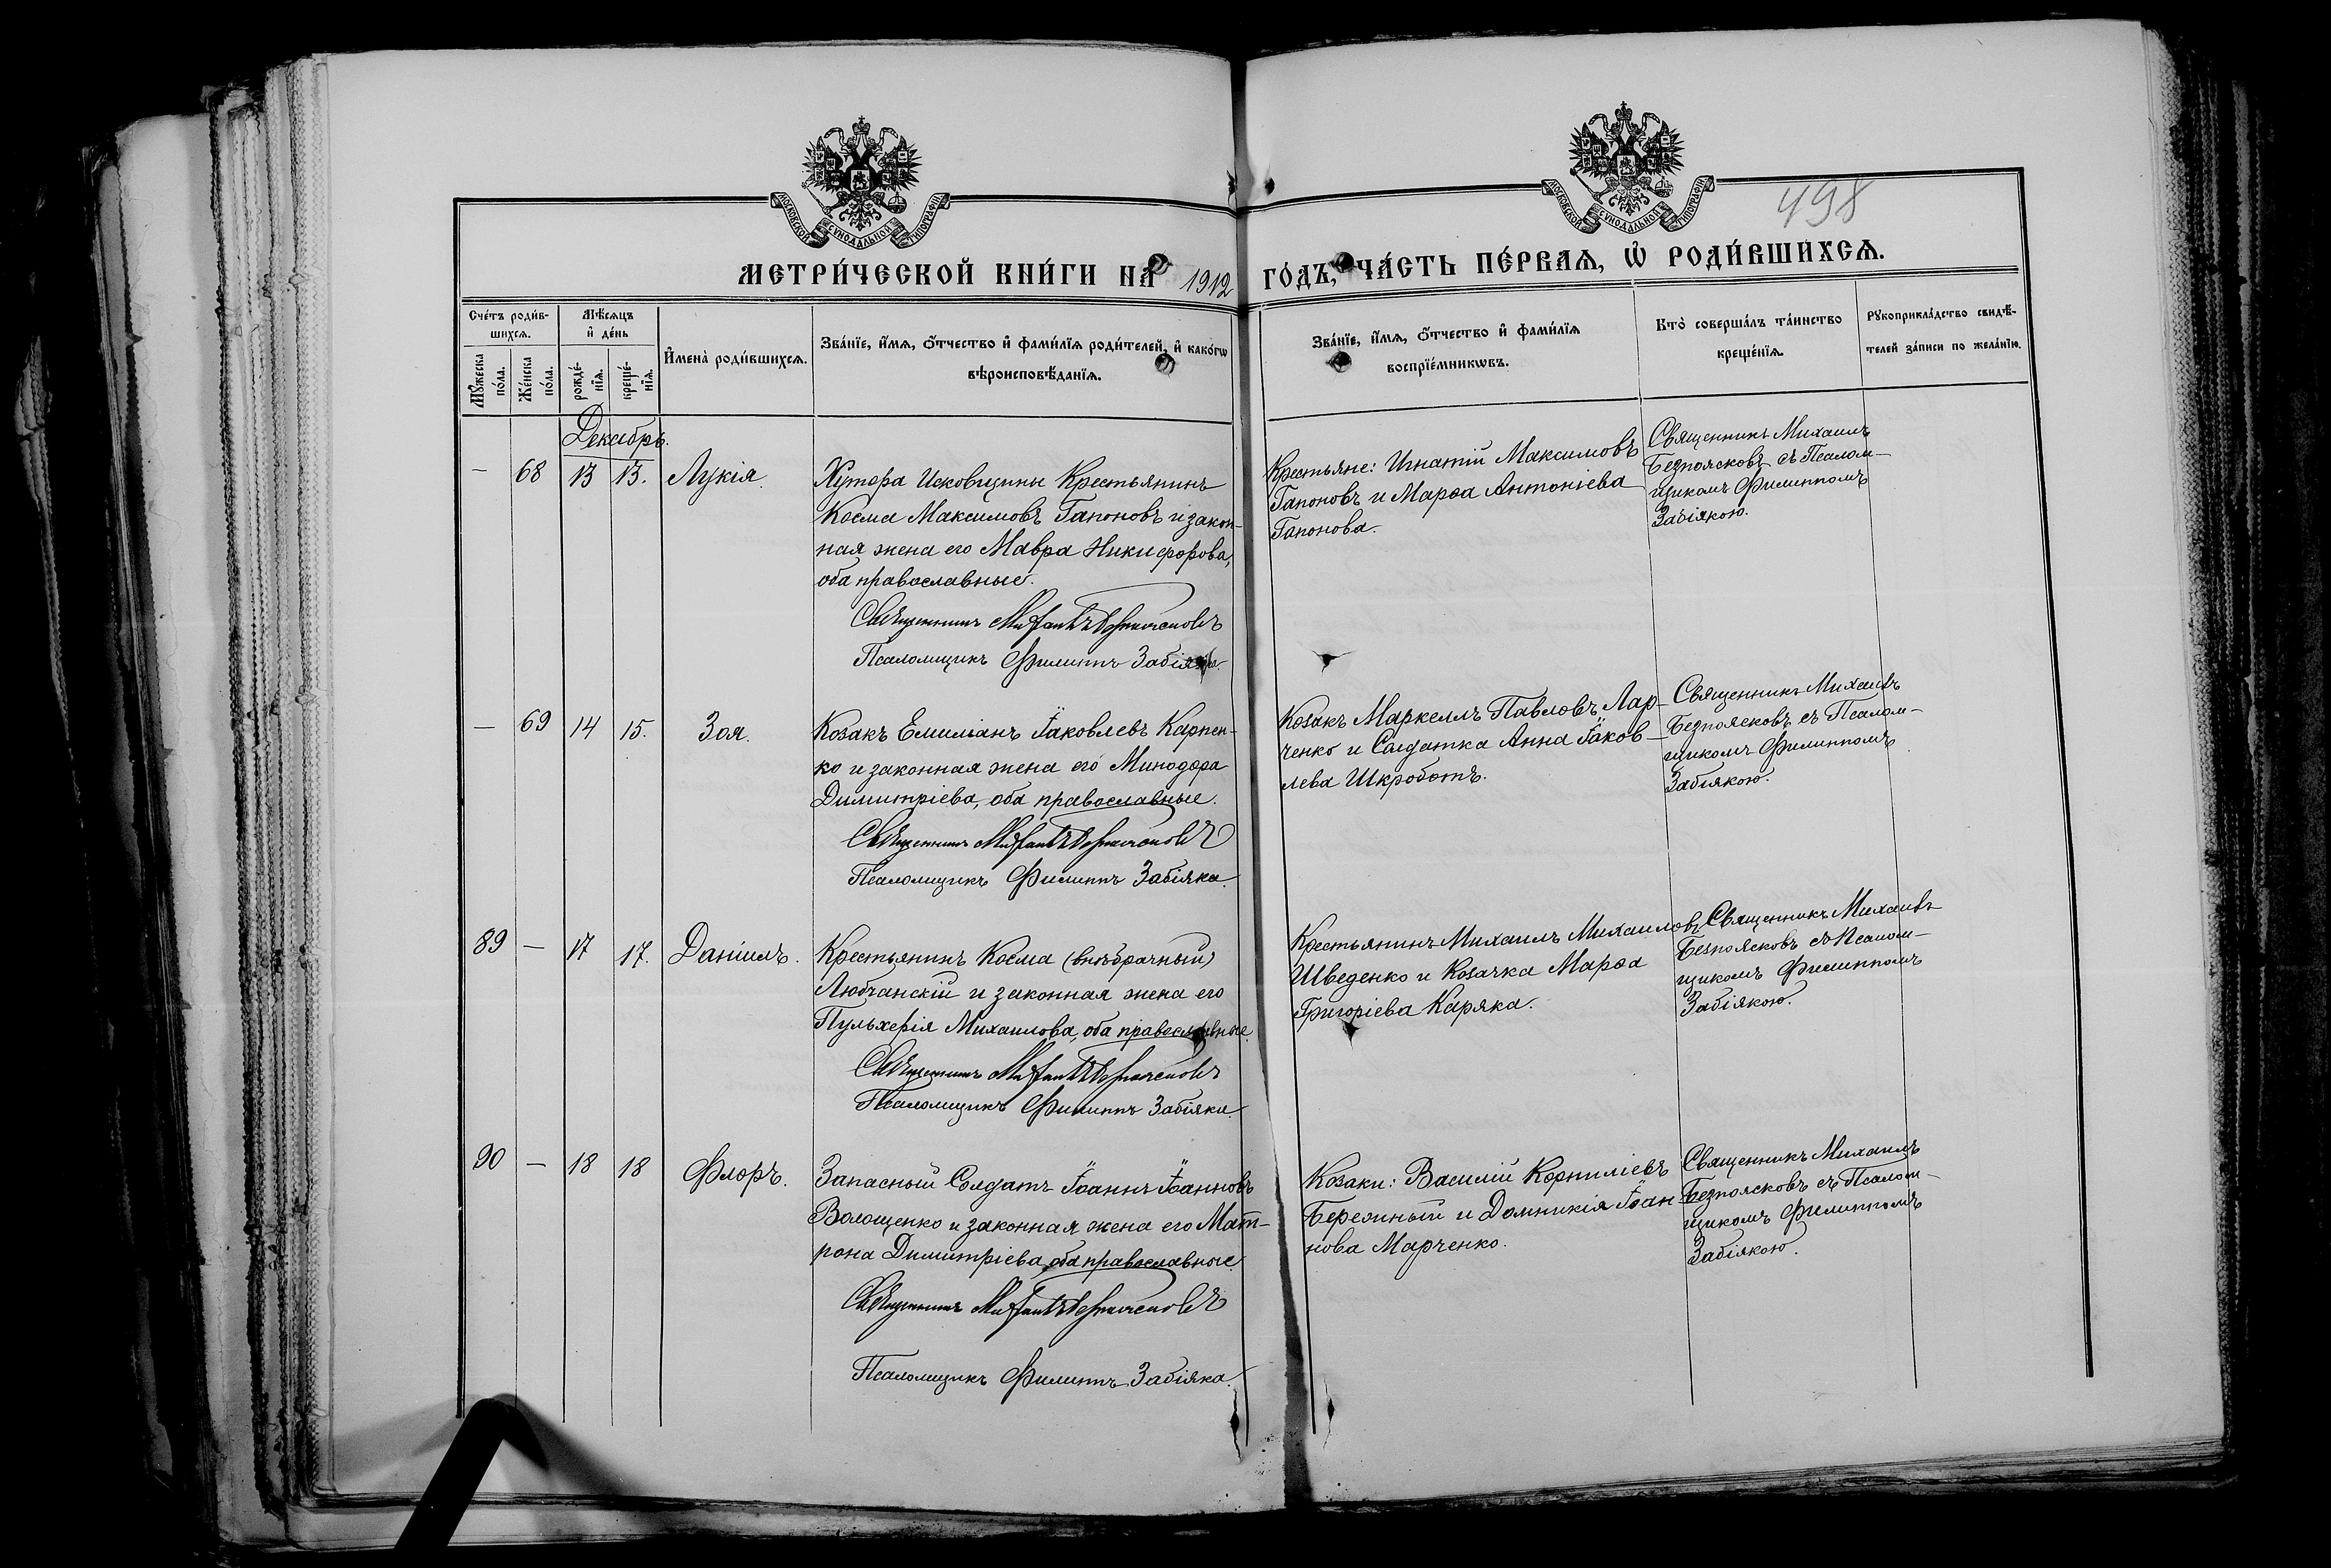 МОСКОВСКОЙ СУНОДАЛЬНОЙ ТИПОГРАФІИ
МОСКОВСКОЙ СУНОДАЛЬНОЙ ТИПОГРАФІИ
498
МЕТРИ́ЧЕСКОЙ КНИ́ГИ НА 1912 ГО́ДЪ, ЧА́СТЬ ПЕ́РВАѦ, Ѡ РОДИ́ВШИХСѦ.
Сче́тъ роди́в-
шихсѧ.
Мꙋ́жеска по́ла.
Же́нска по́ла.
Мѣ́сѧцъ
и҆ де́нь
рожде́-
нїѧ.
креще́-
нїѧ.
И҆мена̀ роди́вшихсѧ.
Зва́нїе, и҆́мѧ, ѻ҆́тчество и҆ фами́лїѧ роди́телей, и҆ како́гѡ
вѣроисповѣ́данїѧ.
Зва́нїе, и҆́мѧ, ѻ҆́тчество и҆ фами́лїѧ
воспрїе́мникѡвъ.
Кто̀ соверша́лъ та́инство
креще́нїѧ.
Рꙋкоприкла́дство свидѣ́-
телей за́писи по жела́нїю.
Декабрь.
— 68 13 13. Лукія.
Хутора Исковщины Крестьянинъ
Косма Максимовъ Гапоновъ и закон-
ная жена его Мавра Никифорова,
оба православные.
Священникъ Михаилъ Безпоясковъ
Псаломщикъ Филиппъ Забіяка.
Крестьяне: Игнатій Максимовъ
Гапоновъ и Марѳа Антоніева
Гапонова.
Священникъ Михаилъ
Безпоясковъ съ Псалом-
щикомъ Филиппомъ
Забіякою.
— 69 14 15. Зоя.
Козакъ Емиліанъ Іаковлевъ Карпен-
ко и законная жена его Минодора
Димитріева, оба православные.
Священникъ Михаилъ Безпоясковъ
Псаломщикъ Филиппъ Забіяка.
Козакъ Маркеллъ Павловъ Лар-
ченко и Солдатка Анна Іаков-
лева Шкроботъ.
Священникъ Михаилъ
Безпоясковъ съ Псалом-
щикомъ Филиппомъ
Забіякою.
89 — 17 17. Даніилъ.
Крестьянинъ Косма (внѣбрачный)
Любчанскій и законная жена его
Пульхерія Михаилова, оба православные.
Священникъ Михаилъ Безпоясковъ
Псаломщикъ Филиппъ Забіяка.
Крестьянинъ Михаилъ Михаиловъ
Шведенко и Козачка Марѳа
Григоріева Каряка.
Священникъ Михаилъ
Безпоясковъ съ Псалом-
щикомъ Филиппомъ
Забіякою.
90 — 18 18 Флоръ.
Запасный Солдатъ Іоаннъ Іоанновъ
Волощенко и законная жена его Мат-
рона Димитріева, оба православные
Священникъ Михаилъ Безпоясковъ
Псаломщикъ Филиппъ Забіяка.
Козаки: Василій Корниліевъ
Бережный и Домникія Іоан-
нова Марченко.
Священникъ Михаилъ
Безпоясковъ съ Псалом-
щикомъ Филиппомъ
Забіякою.